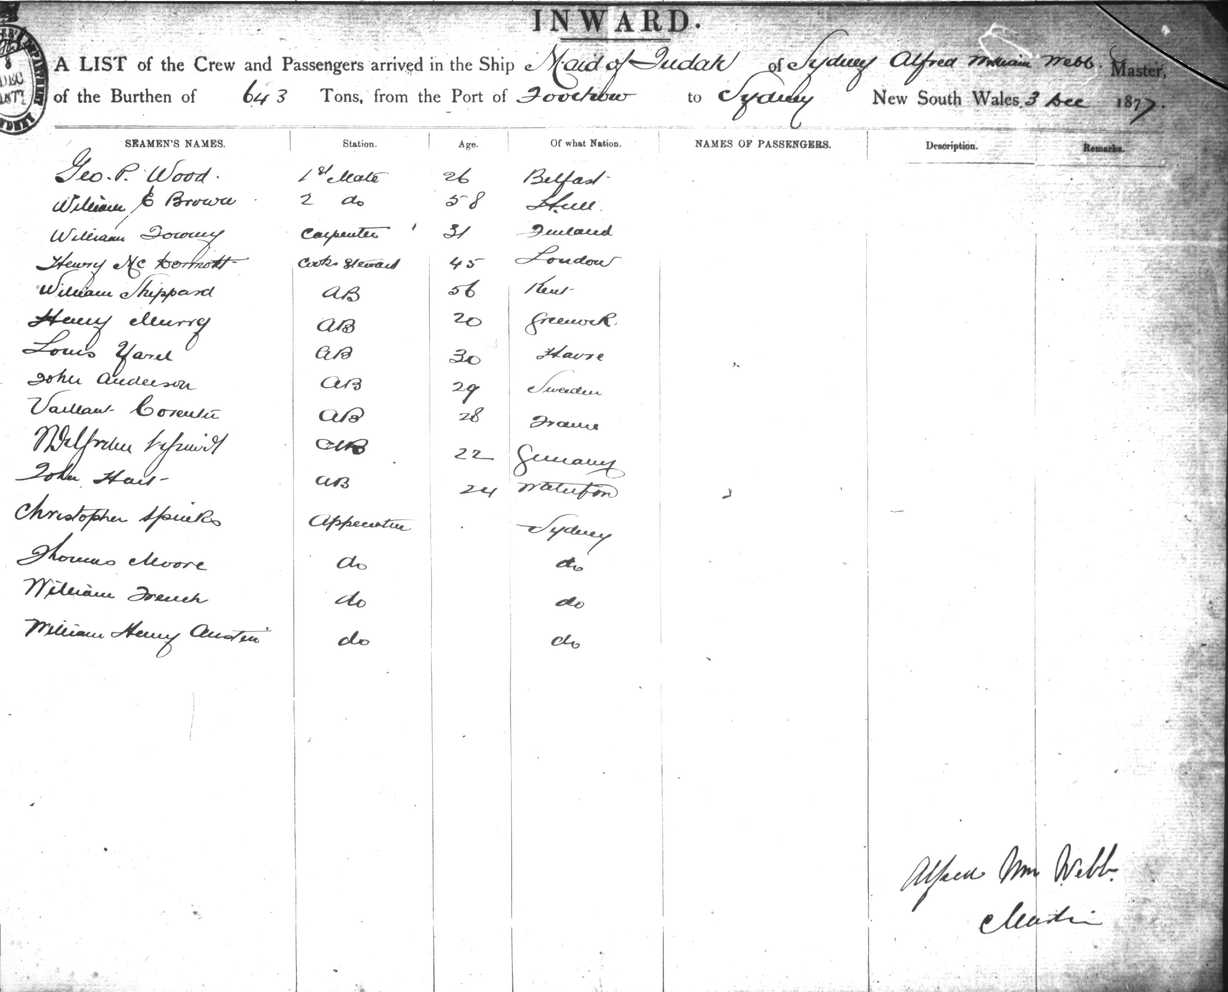 INWARD.
A LIST of the Crew and Passengers arrived in the Ship Maid of Judah of Sydney Alfred William Webb Master,
of the Burthen of 643 Tons, from the Port of Foochow to Sydney New South Wales, 3 Dec 1877.
SEAMEN'S NAMES. Station. Age. Of what Nation. NAMES OF PASSENGERS. Description. Remarks.
Geo. P. Wood. 1st Mate 26 Belfast
William E Brown 2 do 58 Hull.
William Carpenter 31 Finland
Henry Mc Dermott Cook & Steward 45 London
William Shippard AB 56 Kent
Henry Murry AB 20 Greenock.
Louis Yard AB 30 Havre
John Anderson AB 29 Sweden
Vaillant Corentin AB 28 France
AB 22 Germany
John Hart AB 24 Waterford
Christopher Spinks Appecntice Sydney
Thomas Moore do do
William French do do
William Henry Austin do do
Alfred Wm Webb.
Master